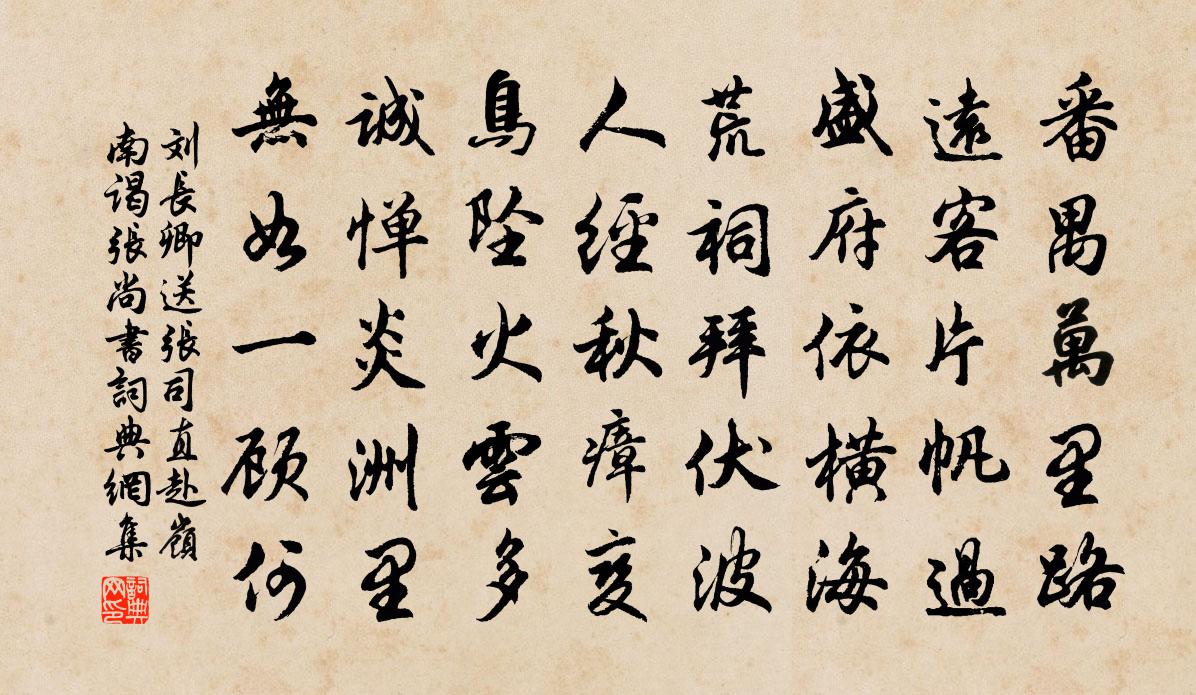 番禺萬里路
遠客片帆過
盛府依橫海
荒祠拜伏波
人經秋瘴变
鳥坠火雲多
誠惮炎洲里
無如一顾何
刘長卿送張司直赴嶺
南謁張尚書詞典網集
詞典网印